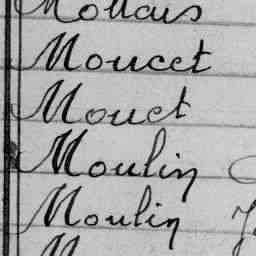 Moucet
Mouet
Moulin
Moulin